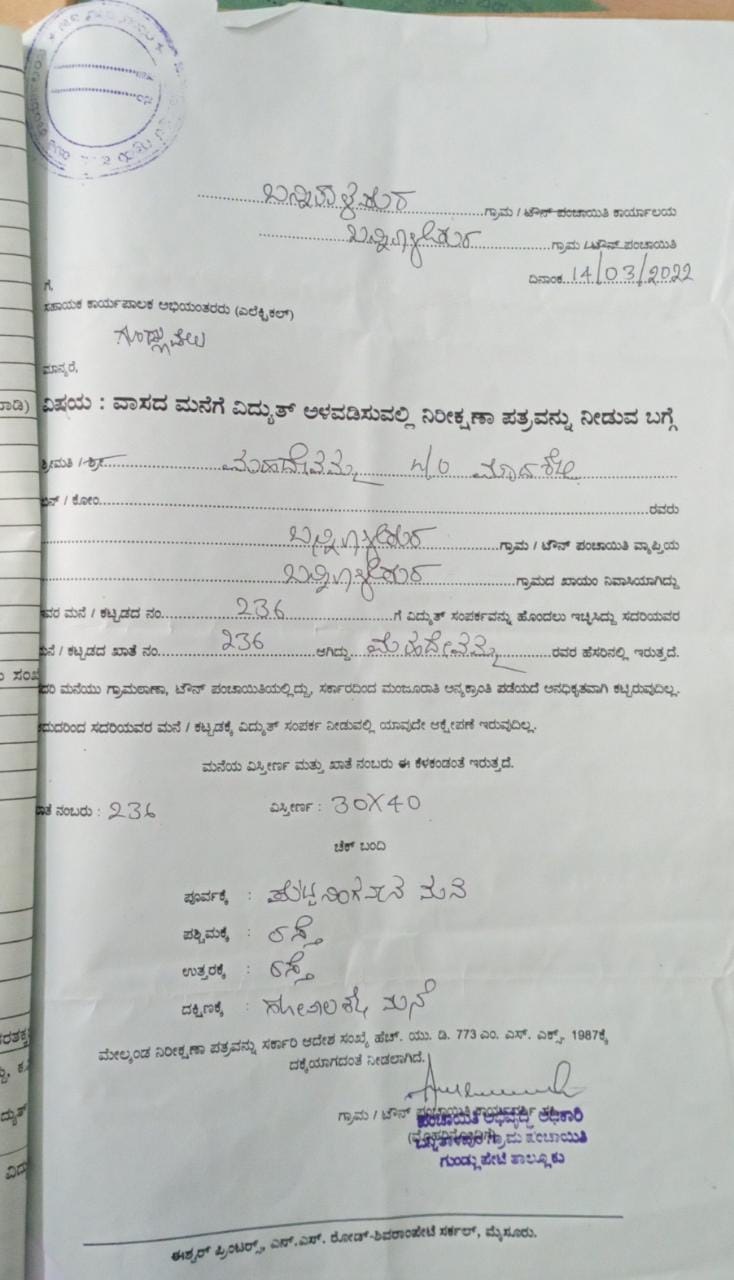 ಬನ್ನಿತಾಳಪುರ ಗ್ರಾಮ / ಟೌನ್ ಪಂಚಾಯಿತಿ ಕಾರ್ಯಾಲಯ
ಬನ್ನಿತಾಳಪುರ ಗ್ರಾಮ / ಟೌನ್ ಪಂಚಾಯಿತಿ
ದಿನಾಂಕ 14/03/2022
ಗೆ,
ಸಹಾಯಕ ಕಾರ್ಯಪಾಲಕ ಅಭಿಯಂತರರು (ಎಲೆಕ್ಟ್ರಿಕಲ್)
ಗುಂಡ್ಲುಪೇಟೆ
ಮಾನ್ಯರೆ,
ವಿಷಯ : ವಾಸದ ಮನೆಗೆ ವಿದ್ಯುತ್ ಅಳವಡಿಸುವಲ್ಲಿ ನಿರೀಕ್ಷಣಾ ಪತ್ರವನ್ನು ನೀಡುವ ಬಗ್ಗೆ
ಶ್ರೀಮತಿ / ಶ್ರೀ ಮಹದೇವಮ್ಮ W/O ಮಾದಶೆಟ್ಟಿ
ಬಿನ್ / ಕೋಂ ರವರು
ಬನ್ನಿತಾಳಪುರ ಗ್ರಾಮ / ಟೌನ್ ಪಂಚಾಯಿತಿ ವ್ಯಾಪ್ತಿಯ
ಬನ್ನಿತಾಳಪುರ ಗ್ರಾಮದ ಖಾಯಂ ನಿವಾಸಿಯಾಗಿದ್ದು
ಇವರ ಮನೆ / ಕಟ್ಟಡದ ನಂ. 236 ಗೆ ವಿದ್ಯುತ್ ಸಂಪರ್ಕವನ್ನು ಹೊಂದಲು ಇಚ್ಛಿಸಿದ್ದು ಸದರಿಯವರ
ಮನೆ / ಕಟ್ಟಡದ ಖಾತೆ ನಂ. 236 ಆಗಿದ್ದು ಮಹದೇವಮ್ಮ ರವರ ಹೆಸರಿನಲ್ಲಿ ಇರುತ್ತದೆ.
ಸದರಿ ಮನೆಯು ಗ್ರಾಮಠಾಣಾ, ಟೌನ್ ಪಂಚಾಯಿತಿಯಲ್ಲಿದ್ದು, ಸರ್ಕಾರದಿಂದ ಮಂಜೂರಾತಿ ಅನ್ಯಕ್ರಾಂತಿ ಪಡೆಯದೆ ಅನಧಿಕೃತವಾಗಿ ಕಟ್ಟಿರುವುದಿಲ್ಲ.
ಆದುದರಿಂದ ಸದರಿಯವರ ಮನೆ / ಕಟ್ಟಡಕ್ಕೆ ವಿದ್ಯುತ್ ಸಂಪರ್ಕ ನೀಡುವಲ್ಲಿ ಯಾವುದೇ ಆಕ್ಷೇಪಣೆ ಇರುವುದಿಲ್ಲ.
ಮನೆಯ ವಿಸ್ತೀರ್ಣ ಮತ್ತು ಖಾತೆ ನಂಬರು ಈ ಕೆಳಕಂಡಂತೆ ಇರುತ್ತದೆ.
ಖಾತೆ ನಂಬರು : 236 ವಿಸ್ತೀರ್ಣ : 30X40
ಚೆಕ್ ಬಂದಿ
ಪೂರ್ವಕ್ಕೆ : ಮನೆ
ಪಶ್ಚಿಮಕ್ಕೆ : ರಸ್ತೆ
ಉತ್ತರಕ್ಕೆ : ರಸ್ತೆ
ದಕ್ಷಿಣಕ್ಕೆ : ಮನೆ
ಮೇಲ್ಕಂಡ ನಿರೀಕ್ಷಣಾ ಪತ್ರವನ್ನು ಸರ್ಕಾರಿ ಆದೇಶ ಸಂಖ್ಯೆ ಹೆಚ್. ಯು. ಡಿ. 773 ಎಂ. ಎಸ್. ಎಕ್ಸ್. 1987ಕ್ಕೆ
ದಕ್ಕೆಯಾಗದಂತೆ ನೀಡಲಾಗಿದೆ.
ಗ್ರಾಮ / ಟೌನ್ ಪಂಚಾಯಿತಿ
ಪಂಚಾಯಿತಿ ಅಭಿವೃದ್ಧಿ ಅಧಿಕಾರಿ
ಬನ್ನಿತಾಳಪುರ ಗ್ರಾಮ ಪಂಚಾಯಿತಿ
ಗುಂಡ್ಲುಪೇಟೆ ತಾಲ್ಲೂಕು
ಈಶ್ವರ್ ಪ್ರಿಂಟರ್ಸ್, ಎನ್.ಎಸ್. ರೋಡ್-ಶಿವರಾಂಪೇಟೆ ಸರ್ಕಲ್, ಮೈಸೂರು.